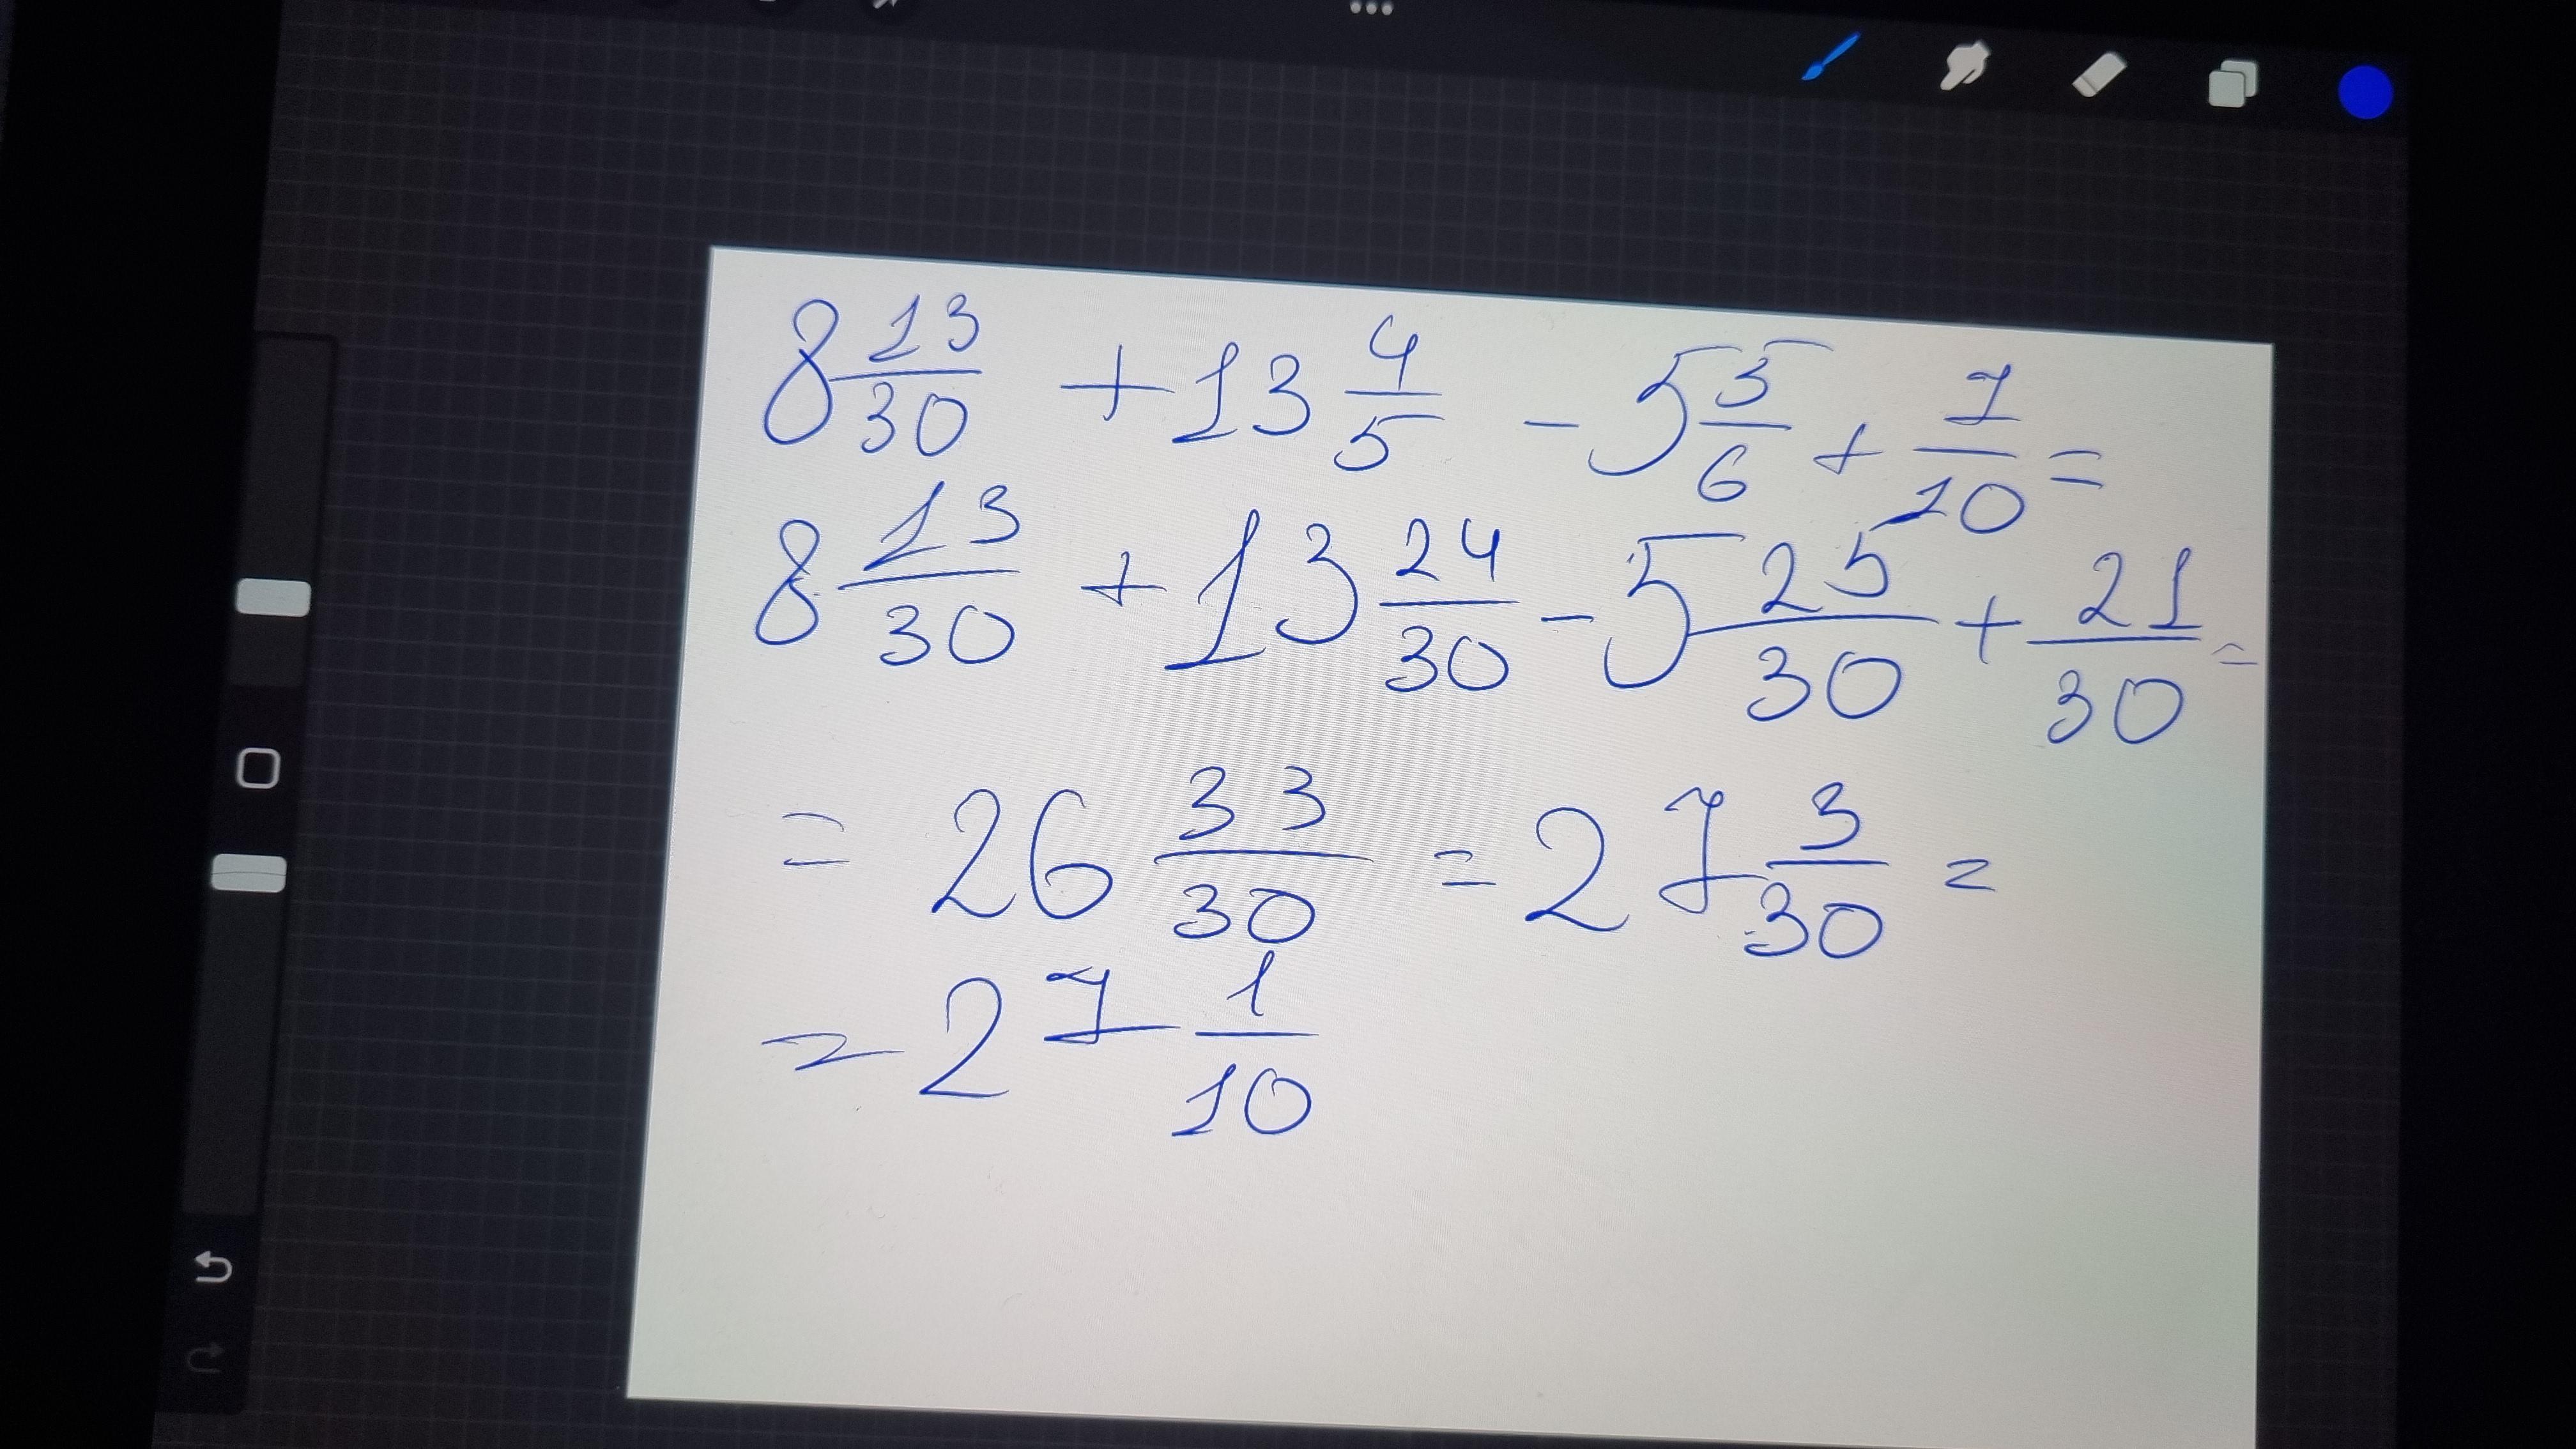 8 13/30 + 13 4/5 - 5 5/6 + 7/10 =
8 13/30 + 13 24/30 - 5 25/30 + 21/30 =
= 26 33/30 = 27 3/30 =
= 27 1/10